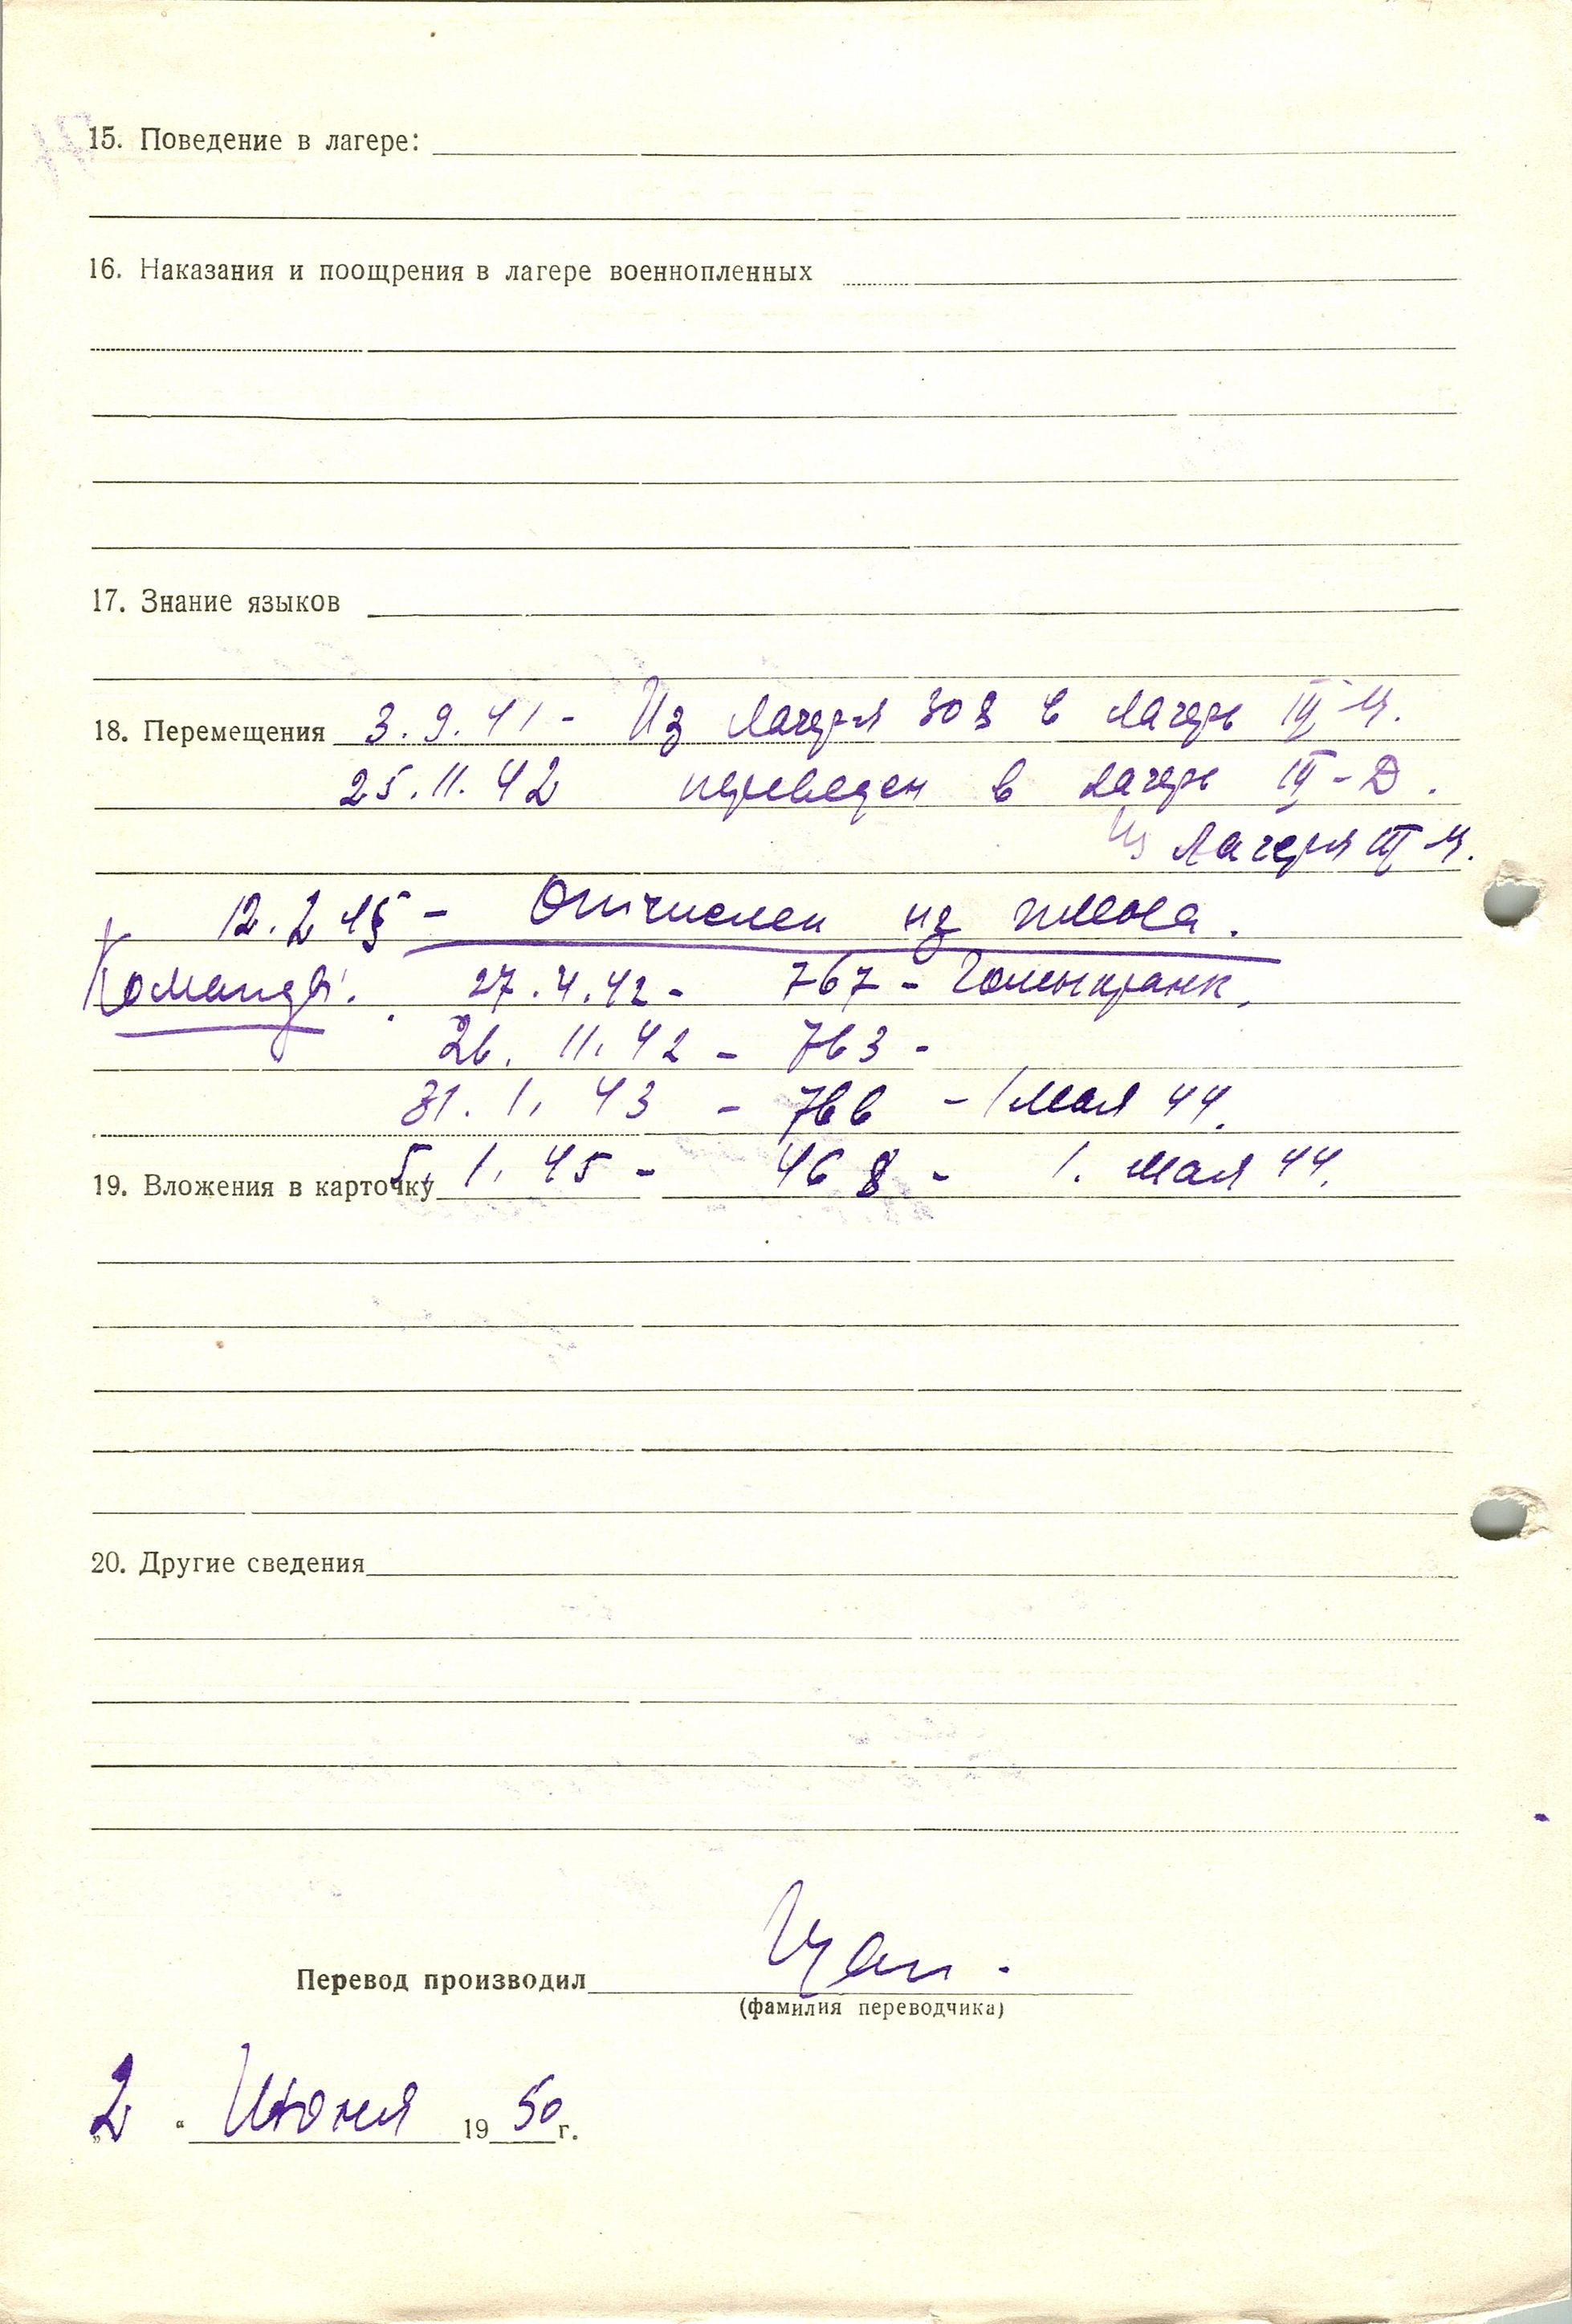 15. Поведение в лагере:
16. Наказания и поощрения в лагере военнопленных
17. Знание языков
18. Перемещения 3.9.41 - Из лагеря 308 в лагерь III
25.11.42 переведен в лагерь III-D.
из лагеря III
12.2.45 - Отчислен из плена.
Команды: 27.4.42 - 767 -
26.11.42 - 763 -
31.1.43 - 766 - 1 мая 44.
19. Вложения в карточку 5.1.45 - 468 - 1. мая 44.
20. Другие сведения
Перевод производил
(фамилия переводчика)
„2“ Июня 1950 г.